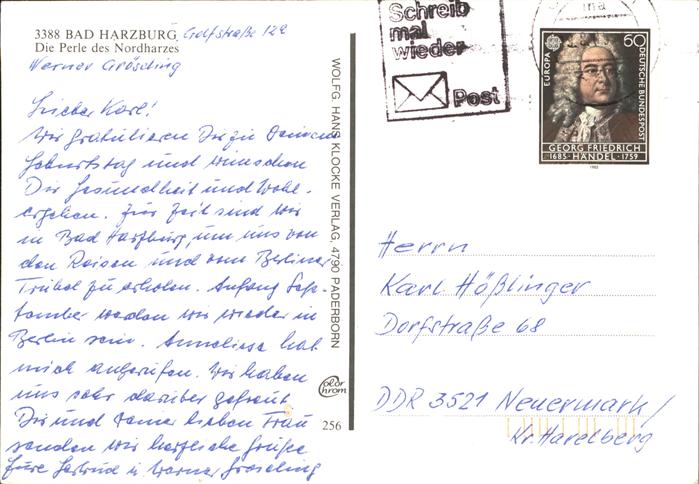 3388 BAD HARZBURG, Golfstraße 12a
Die Perle des Nordharzes
Werner Grösching
Lieber Karl!
Wir gratulieren Dir zu Deinem
Geburtstag und wünschen
Dir Gesundheit und Wohl-
ergehen. Zur Zeit sind wir
in Bad Harzburg, um uns von
den Reisen und vom Berliner
Trubel zu erholen. Anfang Sep-
tember werden wir wieder in
Berlin sein. Anneliese hat
mich angerufen. Wir haben
uns sehr darüber gefreut
Dir und Deiner lieben Frau
senden wir herzliche Grüße
Eure Gertrud u. Werner Grösching
WOLFG. HANS KLOCKE VERLAG, 4790 PADERBORN
Color
Chrom
256
Schreib
mal
wieder
Post
EUROPA
60
DEUTSCHE BUNDESPOST
GEORG FRIEDRICH
1685 · HÄNDEL · 1759
Herrn
Karl Hößlinger
Dorfstraße 68
DDR 3521 Neuermark/
Kr. Havelberg